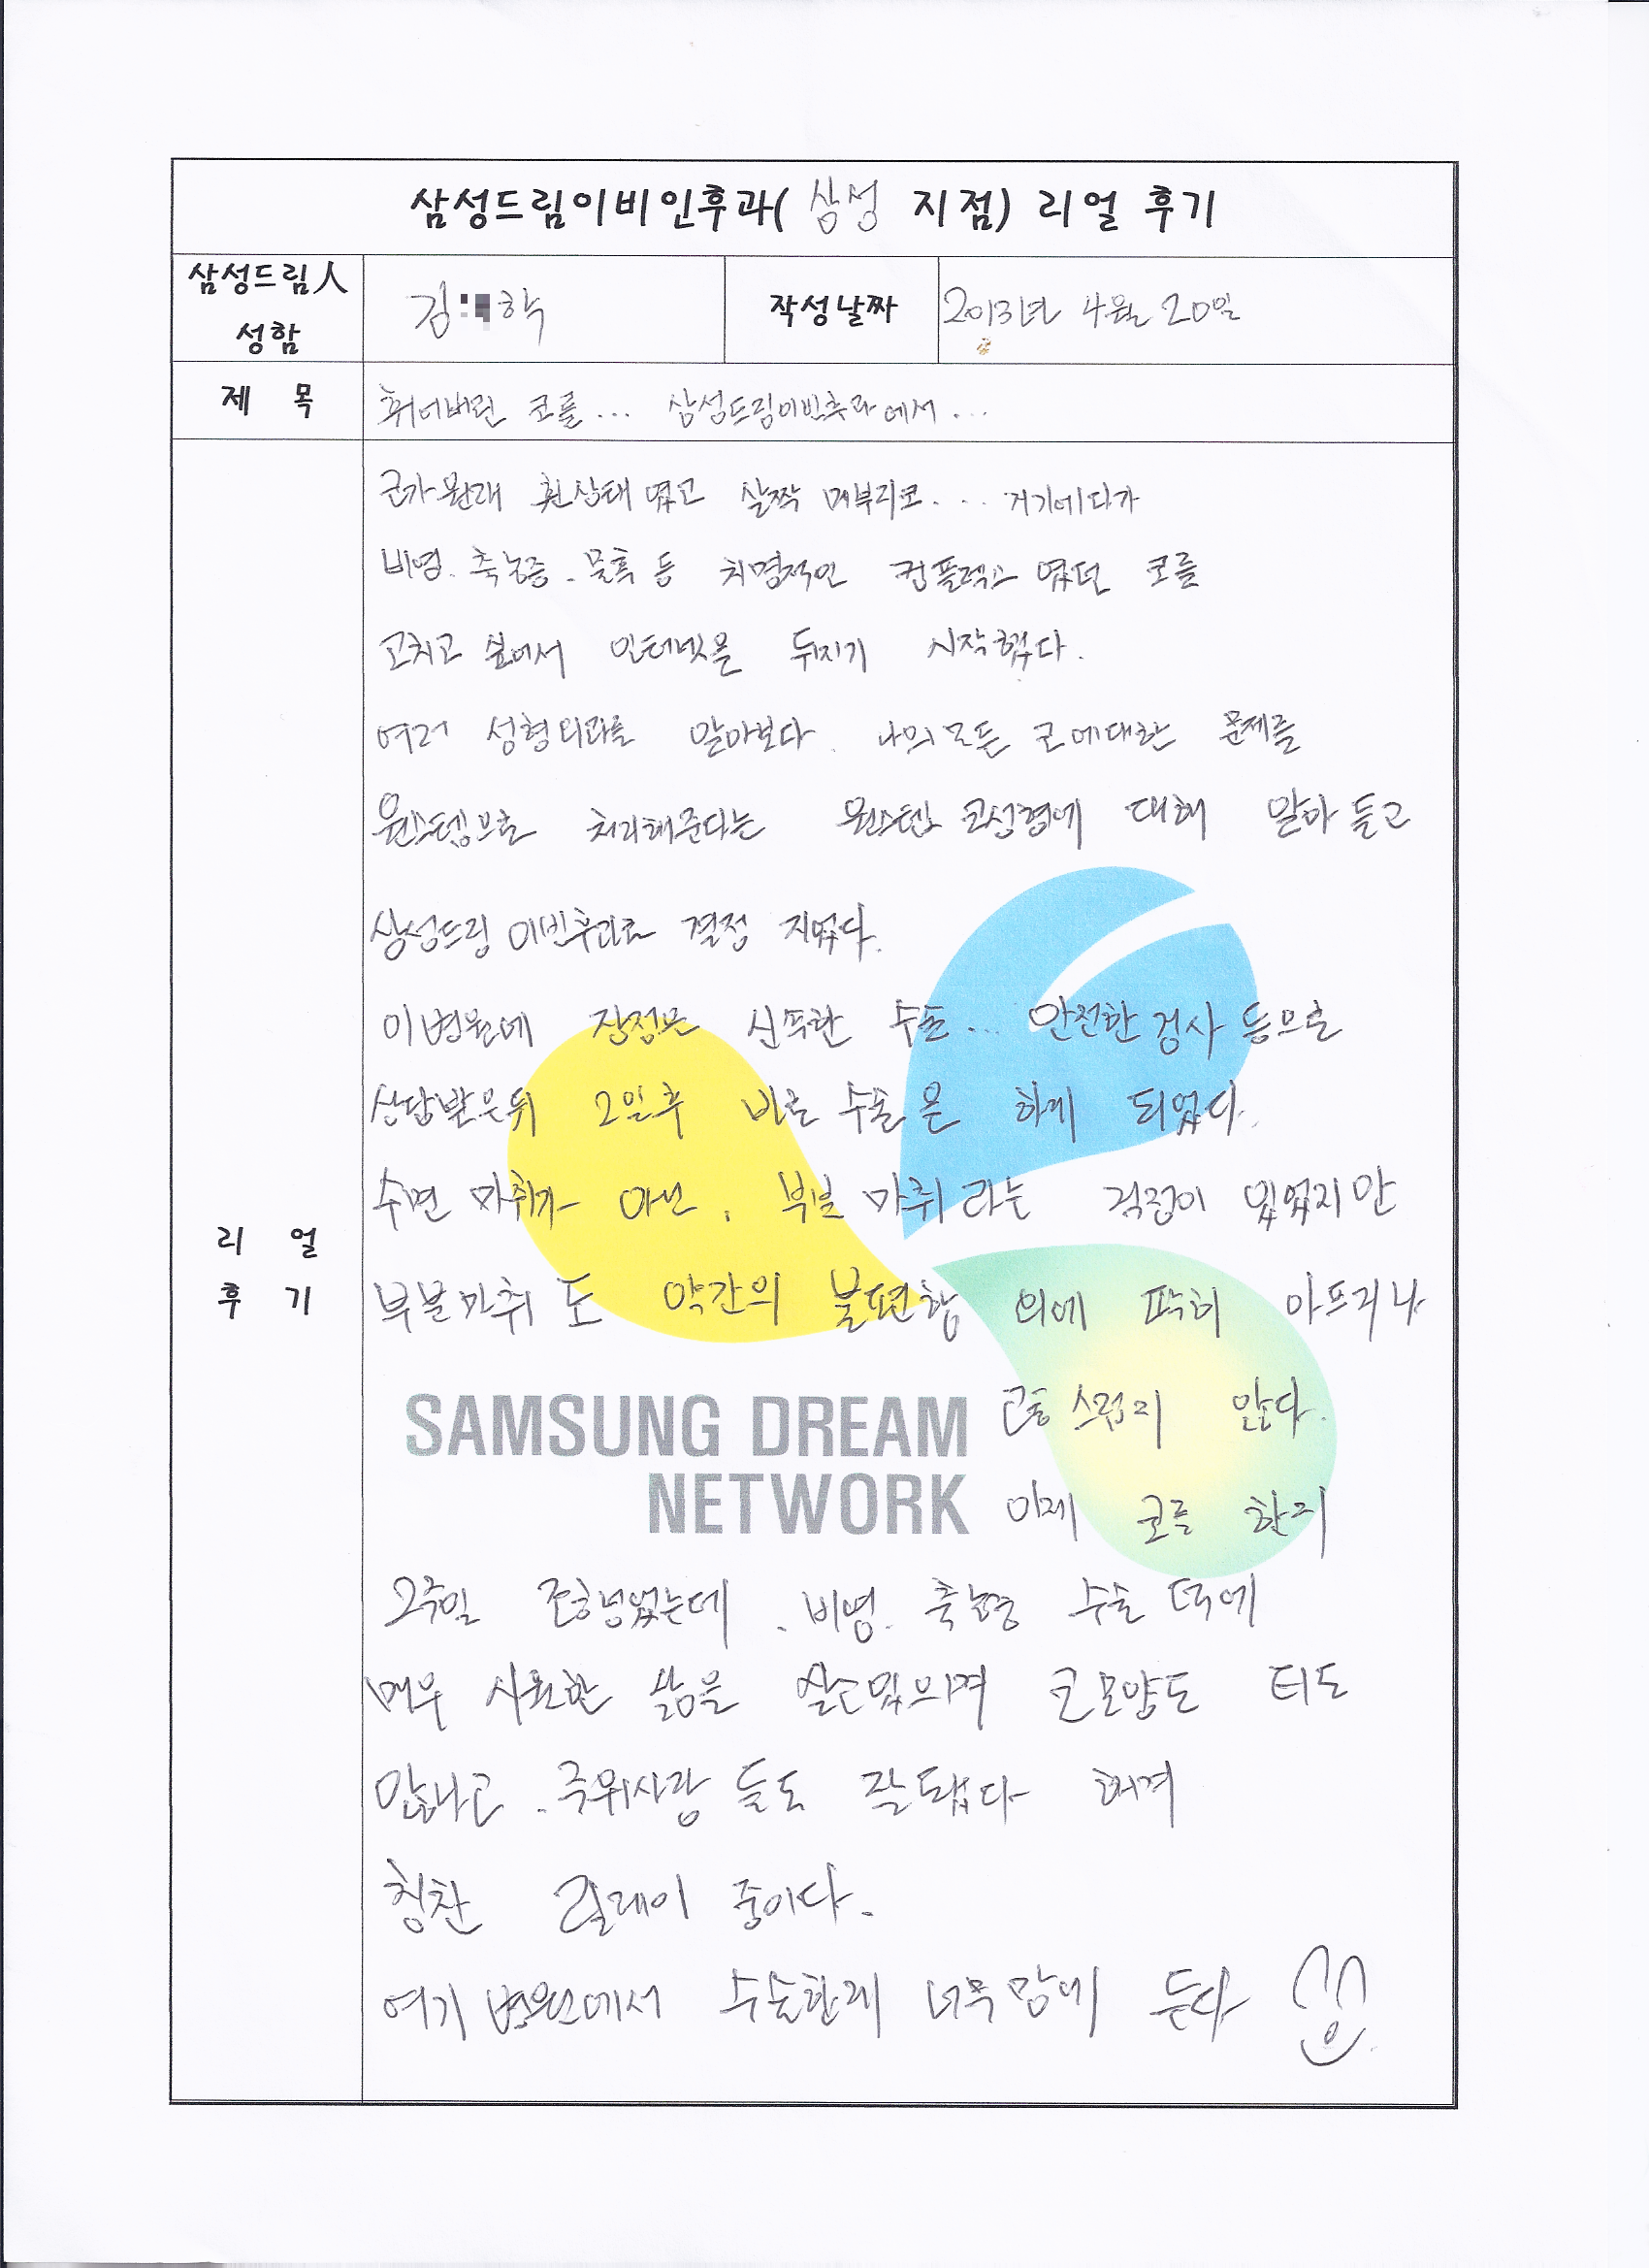 삼성드림이비인후과( 삼성 지점) 리얼 후기
삼성드림人
성함
김 학
작성날짜
2013년 4월 20일
제 목
휘어버린 코를... 삼성드림이빈후과에서...
리 얼
후 기
코가 원래 휜상태 였고 살짝 매부리코... 거기에다가
비염. 축농증. 물혹 등 치명적인 컴플렉스 였던 코를
고치고 싶어서 인터넷을 뒤지기 시작했다.
여러 성형외과를 알아보다. 나의 모든 코에대한 문제를
원스텝으로 처리해준다는 원스텝 코성형에 대해 알아 듣고
삼성드림 이빈후과로 결정 지었다.
이병원에 장점은 신속한 수술... 안전한 검사 등으로
상담받은뒤 2일후 바로 수술을 하게 되었다.
수면 마취가 아닌, 부분 마취 라는 걱정이 있었지만
부분마취 도 약간의 불편함 외에 딱히 아프거나
SAMSUNG DREAM
NETWORK
고통 스럽지 않다.
이제 코를 한지
2주일 정도 넘었는데. 비염. 축농증 수술 덕에
매우 시원한 삶을 살고있으며 코모양도 티도
안나고. 주위사람 들도 잘됐다 하며
칭찬 릴레이 중이다.
여기 병원에서 수술한게 너무 맘에 든다